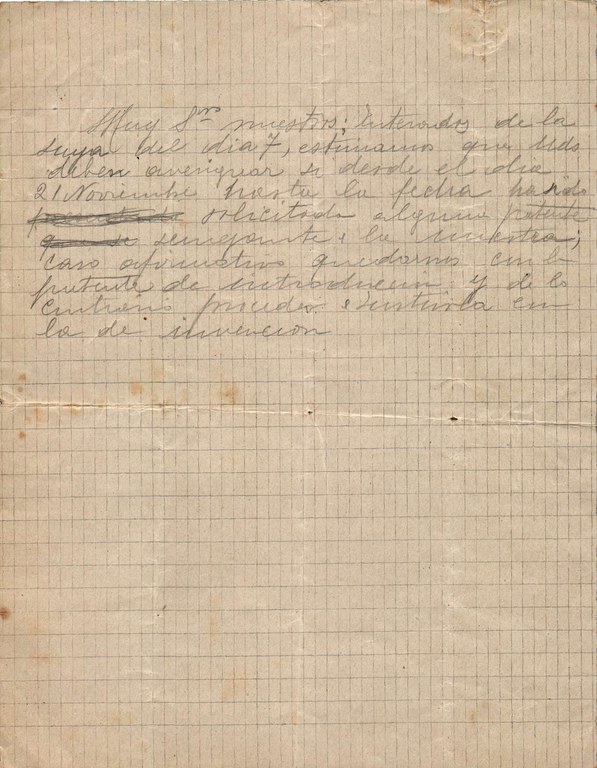 Muy Srs nuestros; Enterados de la
suya del dia 7, estimamos que Uds
deben averiguar si desde el dia
21 Noviembre hasta la fecha ha sido
solicitada alguna patente
semejante a la nuestra;
caso afirmativo quedarnos con la
patente de introduccion y de lo
contrario proceder a sustituirla con
la de invencion